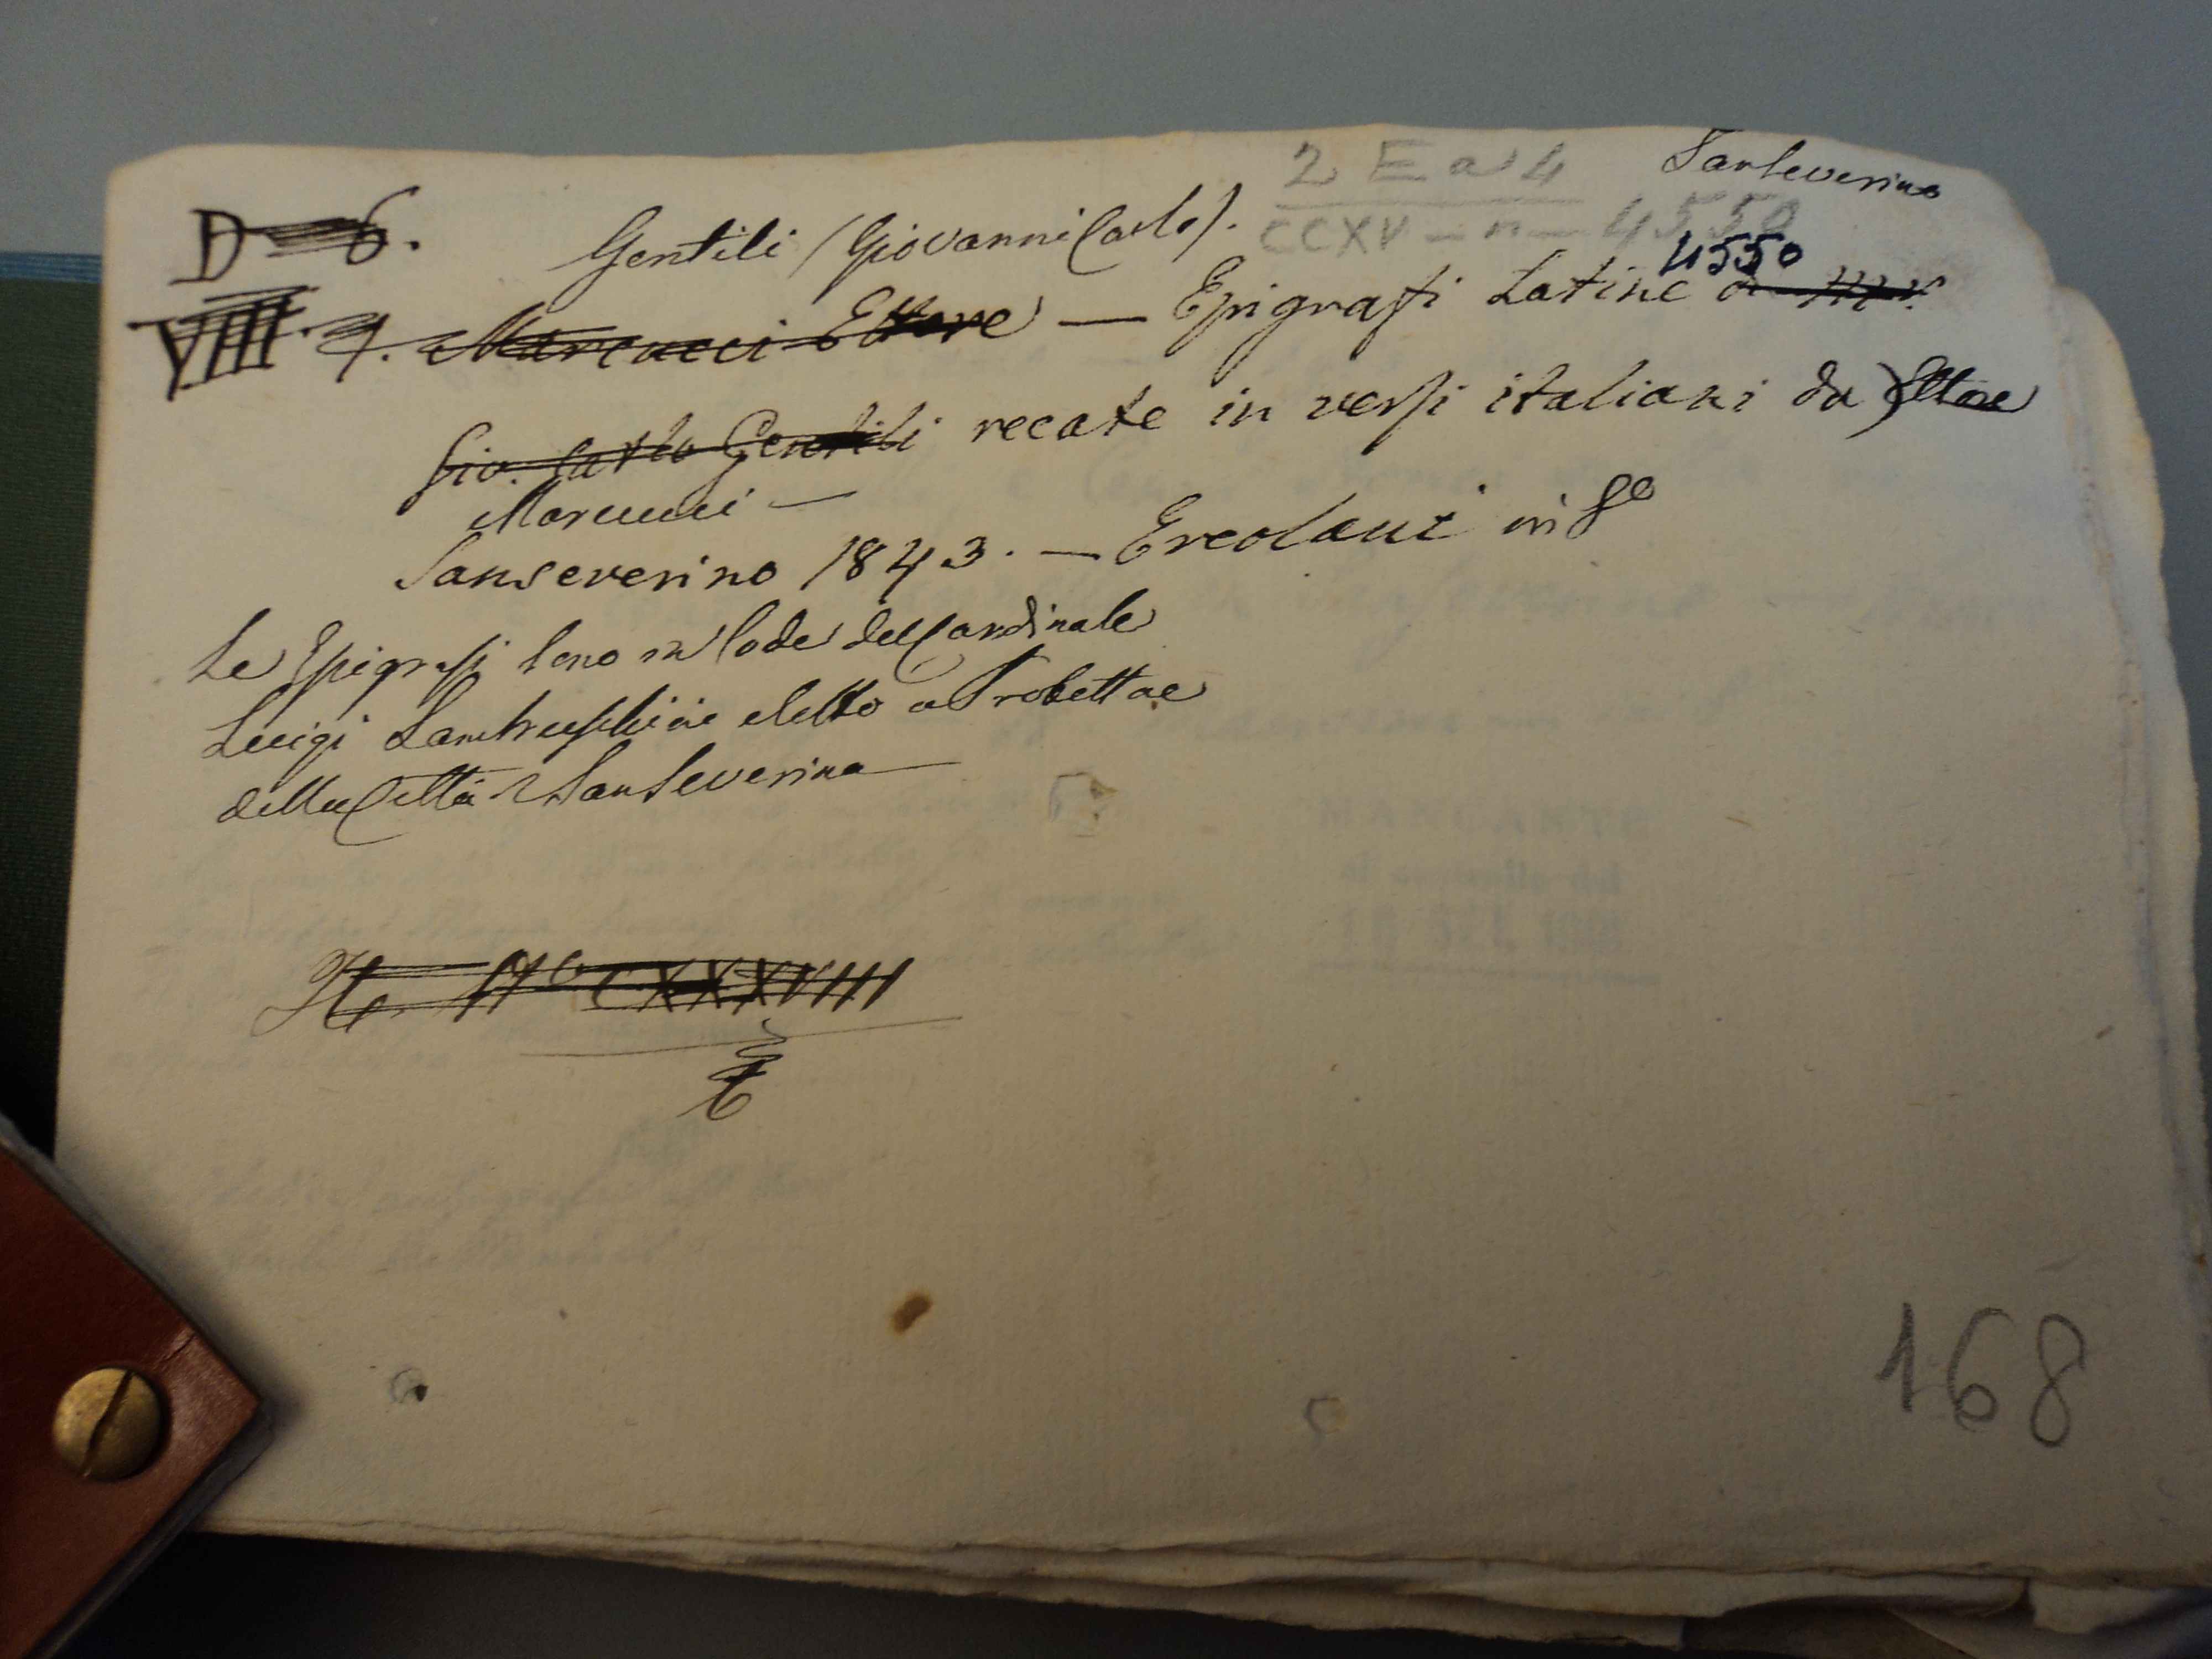 2 E a 4 Sanseverino
D 6. Gentili (Giovanni Carlo). CCXV - n - 4550
4550
VIII. 7. Marcucci Ettore — Epigrafi Latine
Gio. Carlo Gentili recate in versi italiani da Ettore
Marcucci —
Sanseverino 1843. — Ercolani in 8º
Le Epigrafi sono in lode del Cardinale
Luigi Lambruschini eletto a Protettore
della Città di Sanseverino
Nº CXXXVIII
168